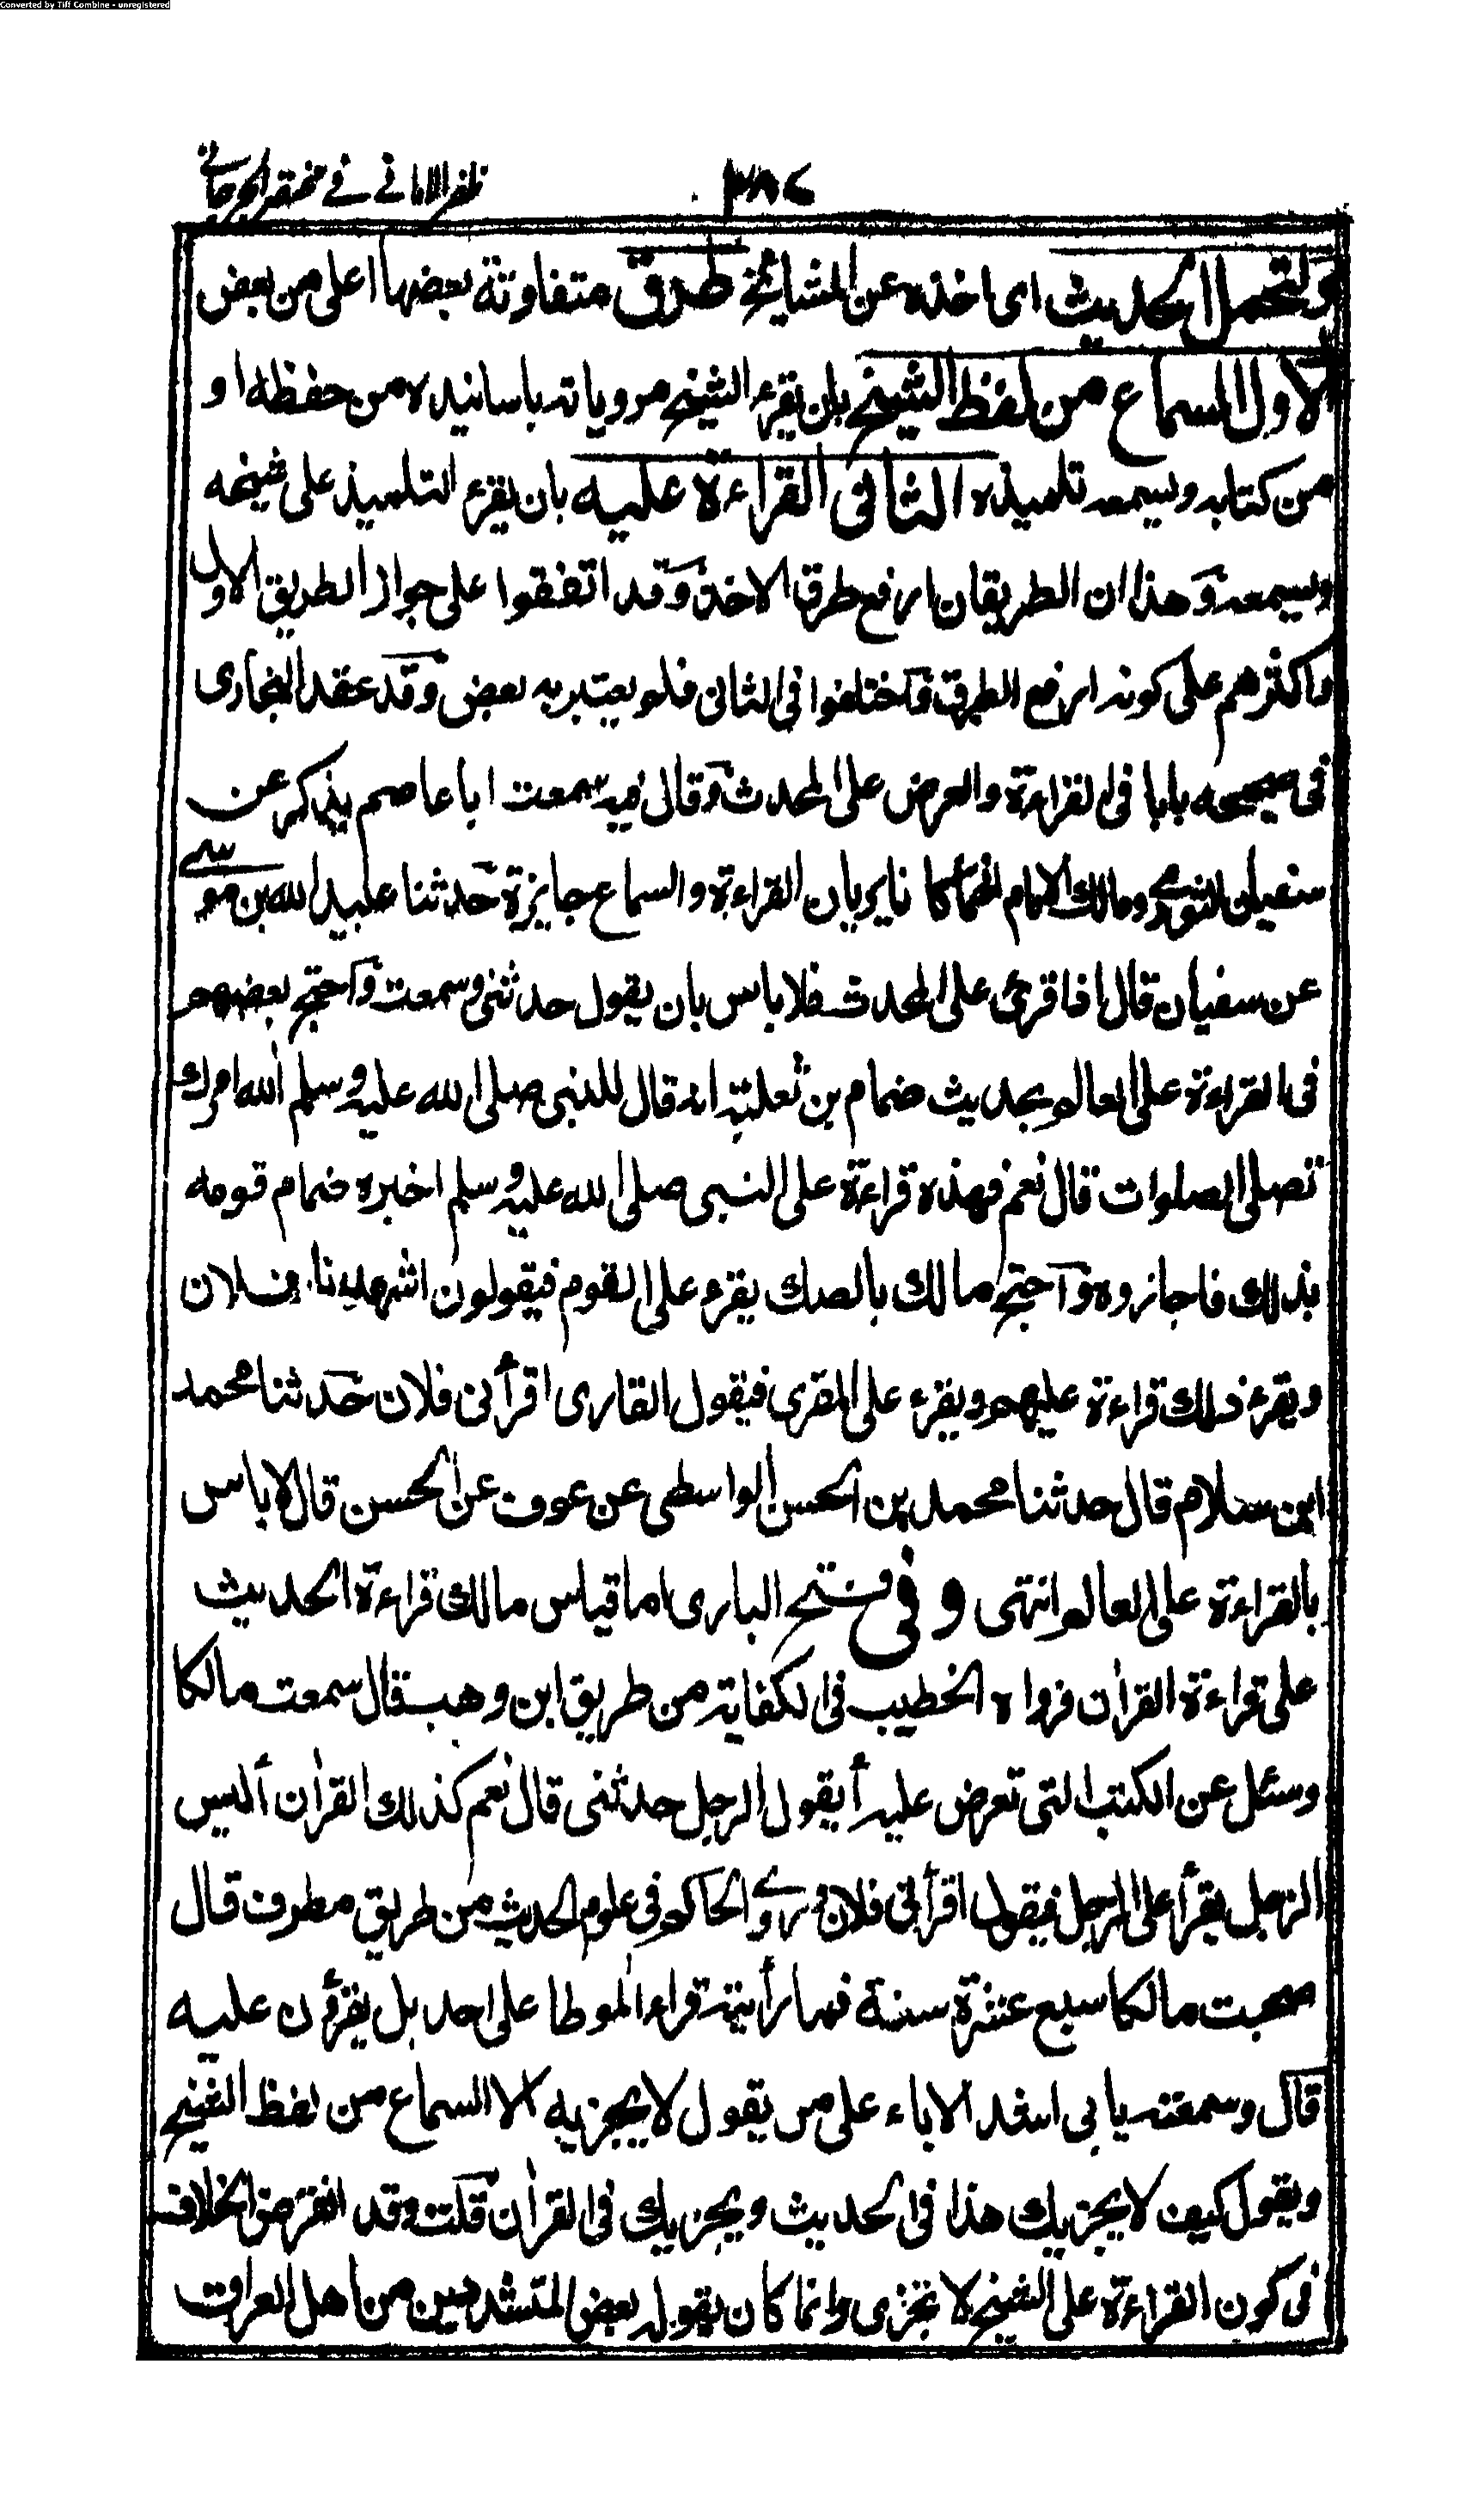 Converted by Tiff Combine - unregistered
ظفر الامانی فی مختصر الجرجانی
ولتحمل الحديث ای اخذه عن المشائخ طرق متفاوتة بعضها اعلى من بعض
الاول السماع من لفظ الشيخ بان يقرء الشيخ مروياته باسانيده من حفظه او
من كتابه ويسمعه تلميذه الثانی القراءة عليه بان يقرء التلميذ على شيخه
ويسمعه وهذان الطريقان ارفع طرق الاخذ وقد اتفقوا على جواز الطريق الاول
واكثرهم على كونه ارفع الطرق واختلفوا فی الثانی فلم يعتبر به بعض وقد عقد البخاری
فی صحيحه بابا فی القراءة والعرض على المحدث وقال فيه سمعت ابا عاصم يذكر عن
سفيان الثوری ومالك الامام انهما كانا يريان القراءة والسماع جايزة حدثنا عبيد الله بن موسى
عن سفيان قال اذا قرئ على المحدث فلا باس بان يقول حدثنی وسمعت واحتج بعضهم
فی القراءة على العالم بحديث ضمام بن ثعلبة انه قال للنبی صلى الله عليه وسلم آلله امرك
تصلی الصلوات قال نعم فهذه قراءة على النبی صلى الله عليه وسلم اخبره ضمام قومه
بذلك فاجازوه واحتج مالك بالصك يقرء على القوم فيقولون اشهدنا فلان
ويقرء ذلك قراءة عليهم ويقرء على المقری فيقول القاری اقرأنی فلان حدثنا محمد
ابن سلام قال حدثنا محمد بن الحسن الواسطی عن عوف عن الحسن قال لا باس
بالقراءة على العالم انتهى وفی فتح الباری اما قياس مالك قراءة الحديث
على قراءة القرآن فرواه الخطيب فی الكفاية من طريق ابن وهب قال سمعت مالكا
وسئل عن الكتب التی تعرض عليه أيقول الرجل حدثنی قال نعم كذلك القرآن أليس
الرجل يقرأ على الرجل فيقول اقرأنی فلان وروى الحاكم فی علوم الحديث من طريق مطرف قال
صحبت مالكا سبع عشرة سنة فما رأيته قرء الموطا على احد بل يقرؤن عليه
قال وسمعته يابی اشد الاباء على من يقول لا يجزيه الا السماع من لفظ الشيخ
ويقول كيف لا يجزيك هذا فی الحديث ويجزيك فی القرآن قلت وقد انقرض الخلاف
فی كون القراءة على الشيخ لا تجزی وانما كان يقوله بعض المتشددين من اهل العراق